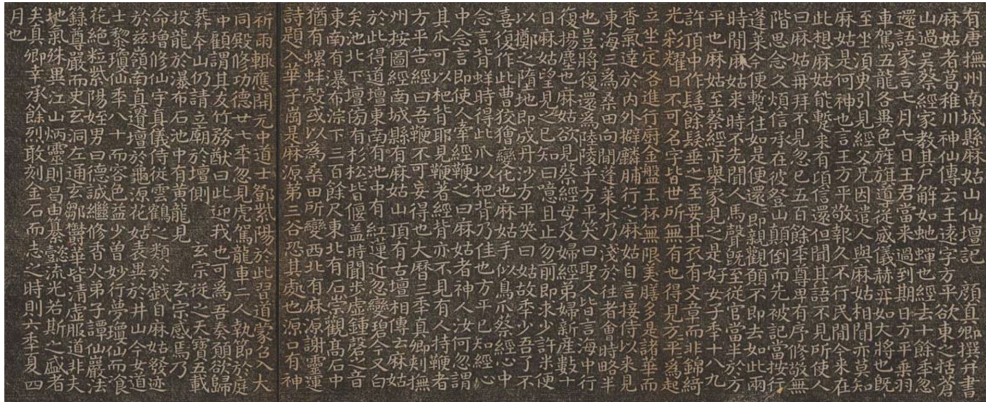 有唐撫州南城縣麻姑山仙壇記 顏真卿撰并書
麻姑者葛稚川神仙傳云王遠字方平欲東之括蒼
山過吳蔡經家教其尸解如蛇蟬也經去十餘年忽
還語家言七月七日王君當來過到期日方平乘羽
車駕五龍各異色旌旗導從威儀赫弈如大將也既
至坐須臾引見經父兄因遣人與麻姑相聞亦莫知
麻姑是何神也言王方平敬報久不行民間今來在
此想麻姑能暫來有頃信還但聞其語不見所使人
曰麻姑再拜不見忽已五百餘年尊卑有序修敬無
階思念久煩信承在彼登山顛倒而先被記當按行
蓬萊今便暫往如是便還即親觀願不即去如此兩
時間麻姑來時不先聞人馬聲既至從官當半於方
平也麻姑至蔡經亦舉家見之是好女子年十八九
許頂中作髻餘髮垂之至要其衣有文章而非錦綺
光彩耀日不可名字皆世所無有也得見方平方平為起
立坐定各進行廚金盤玉杯無限美膳多是諸華而
香氣達於內外擗麟脯行之麻姑自言接待以來見
東海三為桑田向間蓬萊水乃淺於往者會時略半
也豈將復還為陸陵乎方平笑曰聖人皆言海中行
復揚塵也麻姑欲見蔡經母及婦經弟婦新產數十
日麻姑望見之已知曰噫且止勿前即求少許米便
以擲之墮地即成丹沙方平笑曰姑故年少吾了不
喜復作此曹狡獪變化也麻姑手似鳥爪蔡經心中
念言背蛘時得此爪以杷背乃佳也方平已知經心
中念言即使人牽經鞭之曰麻姑者神人汝何忽謂
其爪可以杷背耶見鞭著經背亦不見有人持鞭者
方平告經曰吾鞭不可妄得也大曆三年真卿刺撫
州按圖經南城縣有麻姑山頂有古壇相傳云麻姑
於此得道壇東南有池中有紅蓮近忽變碧今又白
矣池北下壇傍有杉松皆偃蓋時聞步虛鍾磬之音
東南有瀑布淙下三百餘尺東北有石崇觀高石中
猶有螺蚌殼或以為桑田所變西北有麻源謝靈運
詩題入華子岡是麻源第三谷恐其處也源口有神
祈雨輒應開元中道士鄧紫陽於此習道蒙召入大
同殿修功德廿七年忽見虎駕龍車二人執節於庭
中顧謂其友竹務猷曰此迎我也可為吾奏願欲歸
葬本山仍請立廟於壇側 玄宗從之天寶五載
投龍於瀑布石池中有黃龍見 玄宗感焉乃
命增修仙宇真儀侍從雲鶴之類於戲自麻姑發迹
於茲嶺南真遺壇於龜源花姑表異於井山今女道
士黎瓊仙年八十而容色益少曾妙行夢瓊仙而餐
花絕粒紫陽姪男曰德誠繼修香火弟子譚仙巖法
籙尊嚴而史玄洞左通玄鄒鬱華皆清虛服道非夫
地氣殊異江山炳靈則曷由纂懿流光若斯之盛者
矣真卿幸承餘烈敢刻金石而志之時則六年夏四
月也